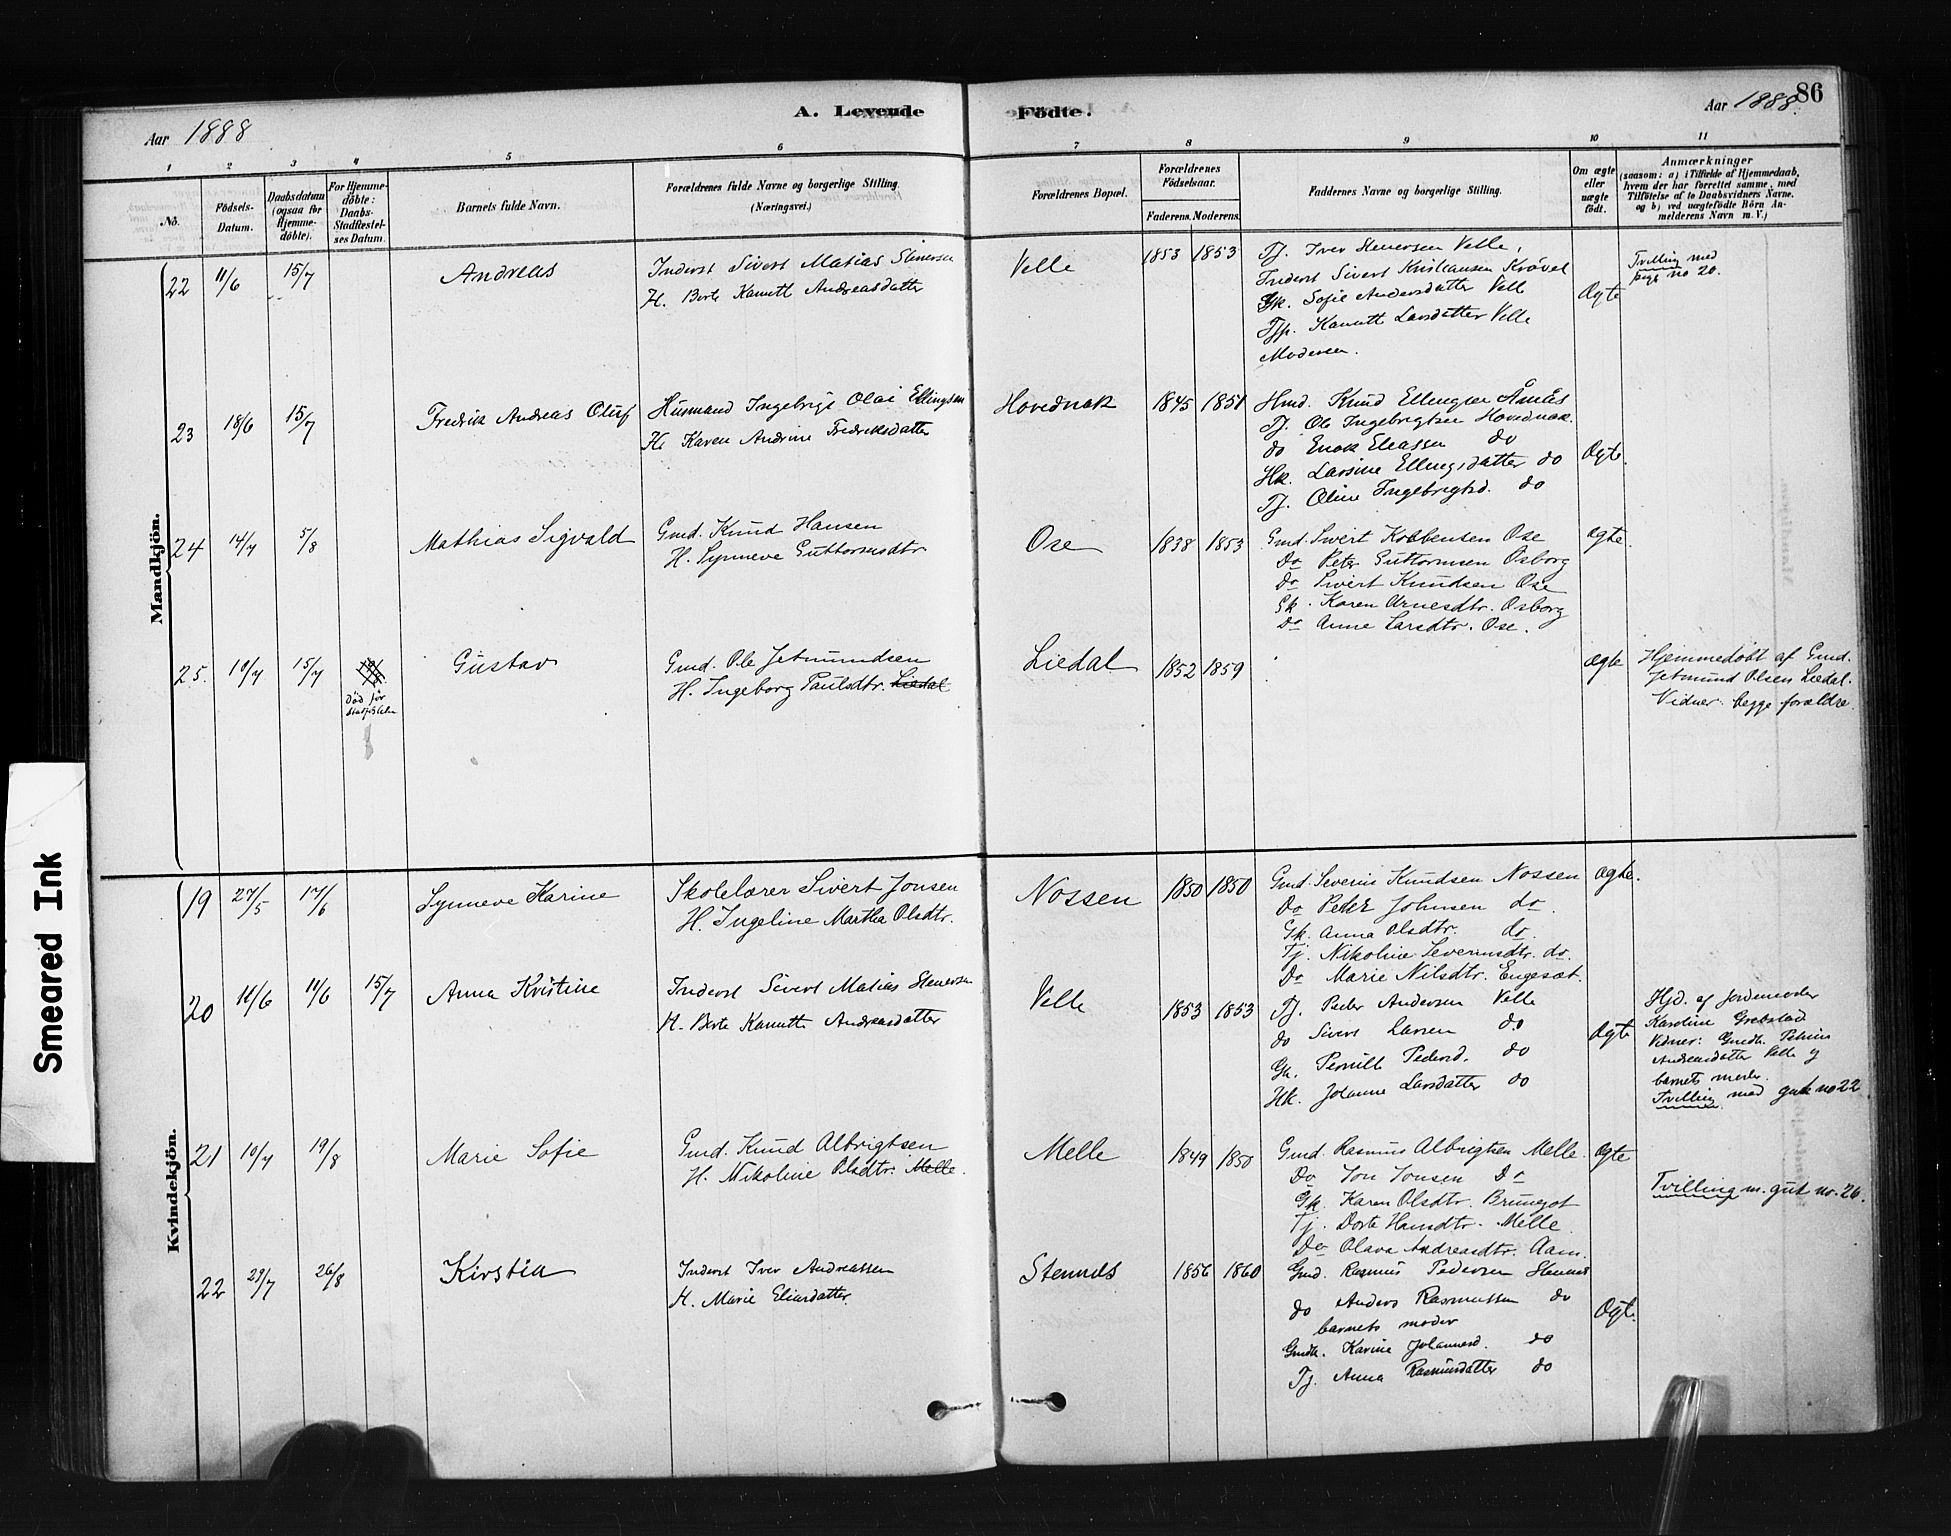 86
A. Levende Födte.
Aar 1888
Aar 1888.
1 2 3 4 5 6 7 8 9 10 11
No.
Födsels-Datum.
Daabsdatum (ogsaa for Hjemme-döbte).
For Hjemme-döbte: Daabs-Stadfæstel-ses Datum.
Barnets fulde Navn.
Forældrenes fulde Navne og borgerlige Stilling. (Næringsvei.)
Forældrenes Bopæl.
Forældrenes Födselsaar.
Faderens. Moderens.
Faddernes Navne og borgerlige Stilling.
Om ægte eller uægte födt.
Anmærkninger
(saasom: a) i Tilfælde af Hjemmedaab,
hvem der har forrettet samme, med
Tilföielse af to Daabsvidners Navne.
og b) ved uægtefödte Börn An-
melderens Navn m. V.)
Mandkjön.
22 11/6 15/7 Andreas
Inderst Sivert Matias Stenersen
H. Berte Kanutte Andreasdatter
Velle 1853 1853
Tj. Iver Stenersen Velle,
Inderst Sivert Kristiansen Krövel
Gk. Sofie Andersdatter Velle
Tjp. Kanutte Larsdatter Velle
Moderen.
Ægte
Tvilling med
pige no 20.
23 18/6 15/7 Fredrik Andreas Oluf
Husmand Ingebrigt Olai Ellingsen
H. Karen Andrine Fredriksdatter
Hovednak 1845 1851
Hmd. Knud Ellingsen Åmås
Tj. Ole Ingebrigtsen Hovednak.
do Enok Eleassen do
Hk. Larsine Ellingsdatter do
Tj. Oline Ingebrigtsd. do
Ægte.
24 14/7 5/8 Mathias Sigvald
Gmd. Knud Hansen
H. Synneve Guttormsdtr.
Ose 1838 1853
Gmd. Sivert Kolbensen Ose
Do Peter Guttormsen Osborg
Do Sivert Knudsen Ose
Gk. Karen Arnesdtr. Osborg
Do Anne Larsdtr. Ose.
ægte.
25. 10/7 15/7
Död för
Stadfæstelsen
Gustav
Gmd. Ole Jetmundsen
H. Ingeborg Paulsdtr. Liedal
Liedal 1852 1859
ægte
Hjemmedöbt af Gmd.
Jetmund Olsen Liedal.
Vidner: begge forældre.
Kvindekjön.
19 27/5 17/6 Synneve Karine
Skolelærer Sivert Jonsen
H. Ingeline Martha Olsdtr.
Nossen 1850 1850
Gmd. Severin Knudsen Nossen
Do Peter Johnsen do.
Gk. Anna Olsdtr. do.
Tj. Nikoline Severinsdtr. do.
Do Marie Nilsdtr. Engesæt.
ægte.
20 11/6 11/6 15/7 Anna Kristine
Inderst Sivert Matias Stenersen
H. Berte Kanutte Andreasdatter
Velle 1853 1853
Tj. Peder Andersen Velle
do Sivert Larsen do
Gk. Pernille Pedersd. do
Hk. Johanne Larsdatter do
Ægte
Hjd. af Jordemoder
Karoline Grebstad
Vidner: Gmdk. Petrine
Andreasdatter Velle og
barnets moder.
Tvilling med gut no 22
21 10/7 19/8 Marie Sofie
Gmd. Knud Albrigtsen
H. Nikoline Olsdtr. Melle.
Melle 1849 1850
Gmd. Rasmus Albrigtsen Melle.
Do Jon Jonsen Do
Gk. Karen Olsdtr. Brunegot
Tj. Dorte Hansdtr. Melle.
Do Olava Andreasdtr. Aam.
Ægte
Tvilling m. gut no. 26.
22 29/7 26/8 Kirstin
Inderst Iver Andreassen
H. Marie Eliasdatter.
Stennes 1856 1860
Gmd. Rasmus Pedersen Stennes
do Anders Rasmussen do
barnets moder
Gmdk. Karine Johannesd. do
Tj. Anna Rasmusdatter do
Ægte.
Smeared Ink